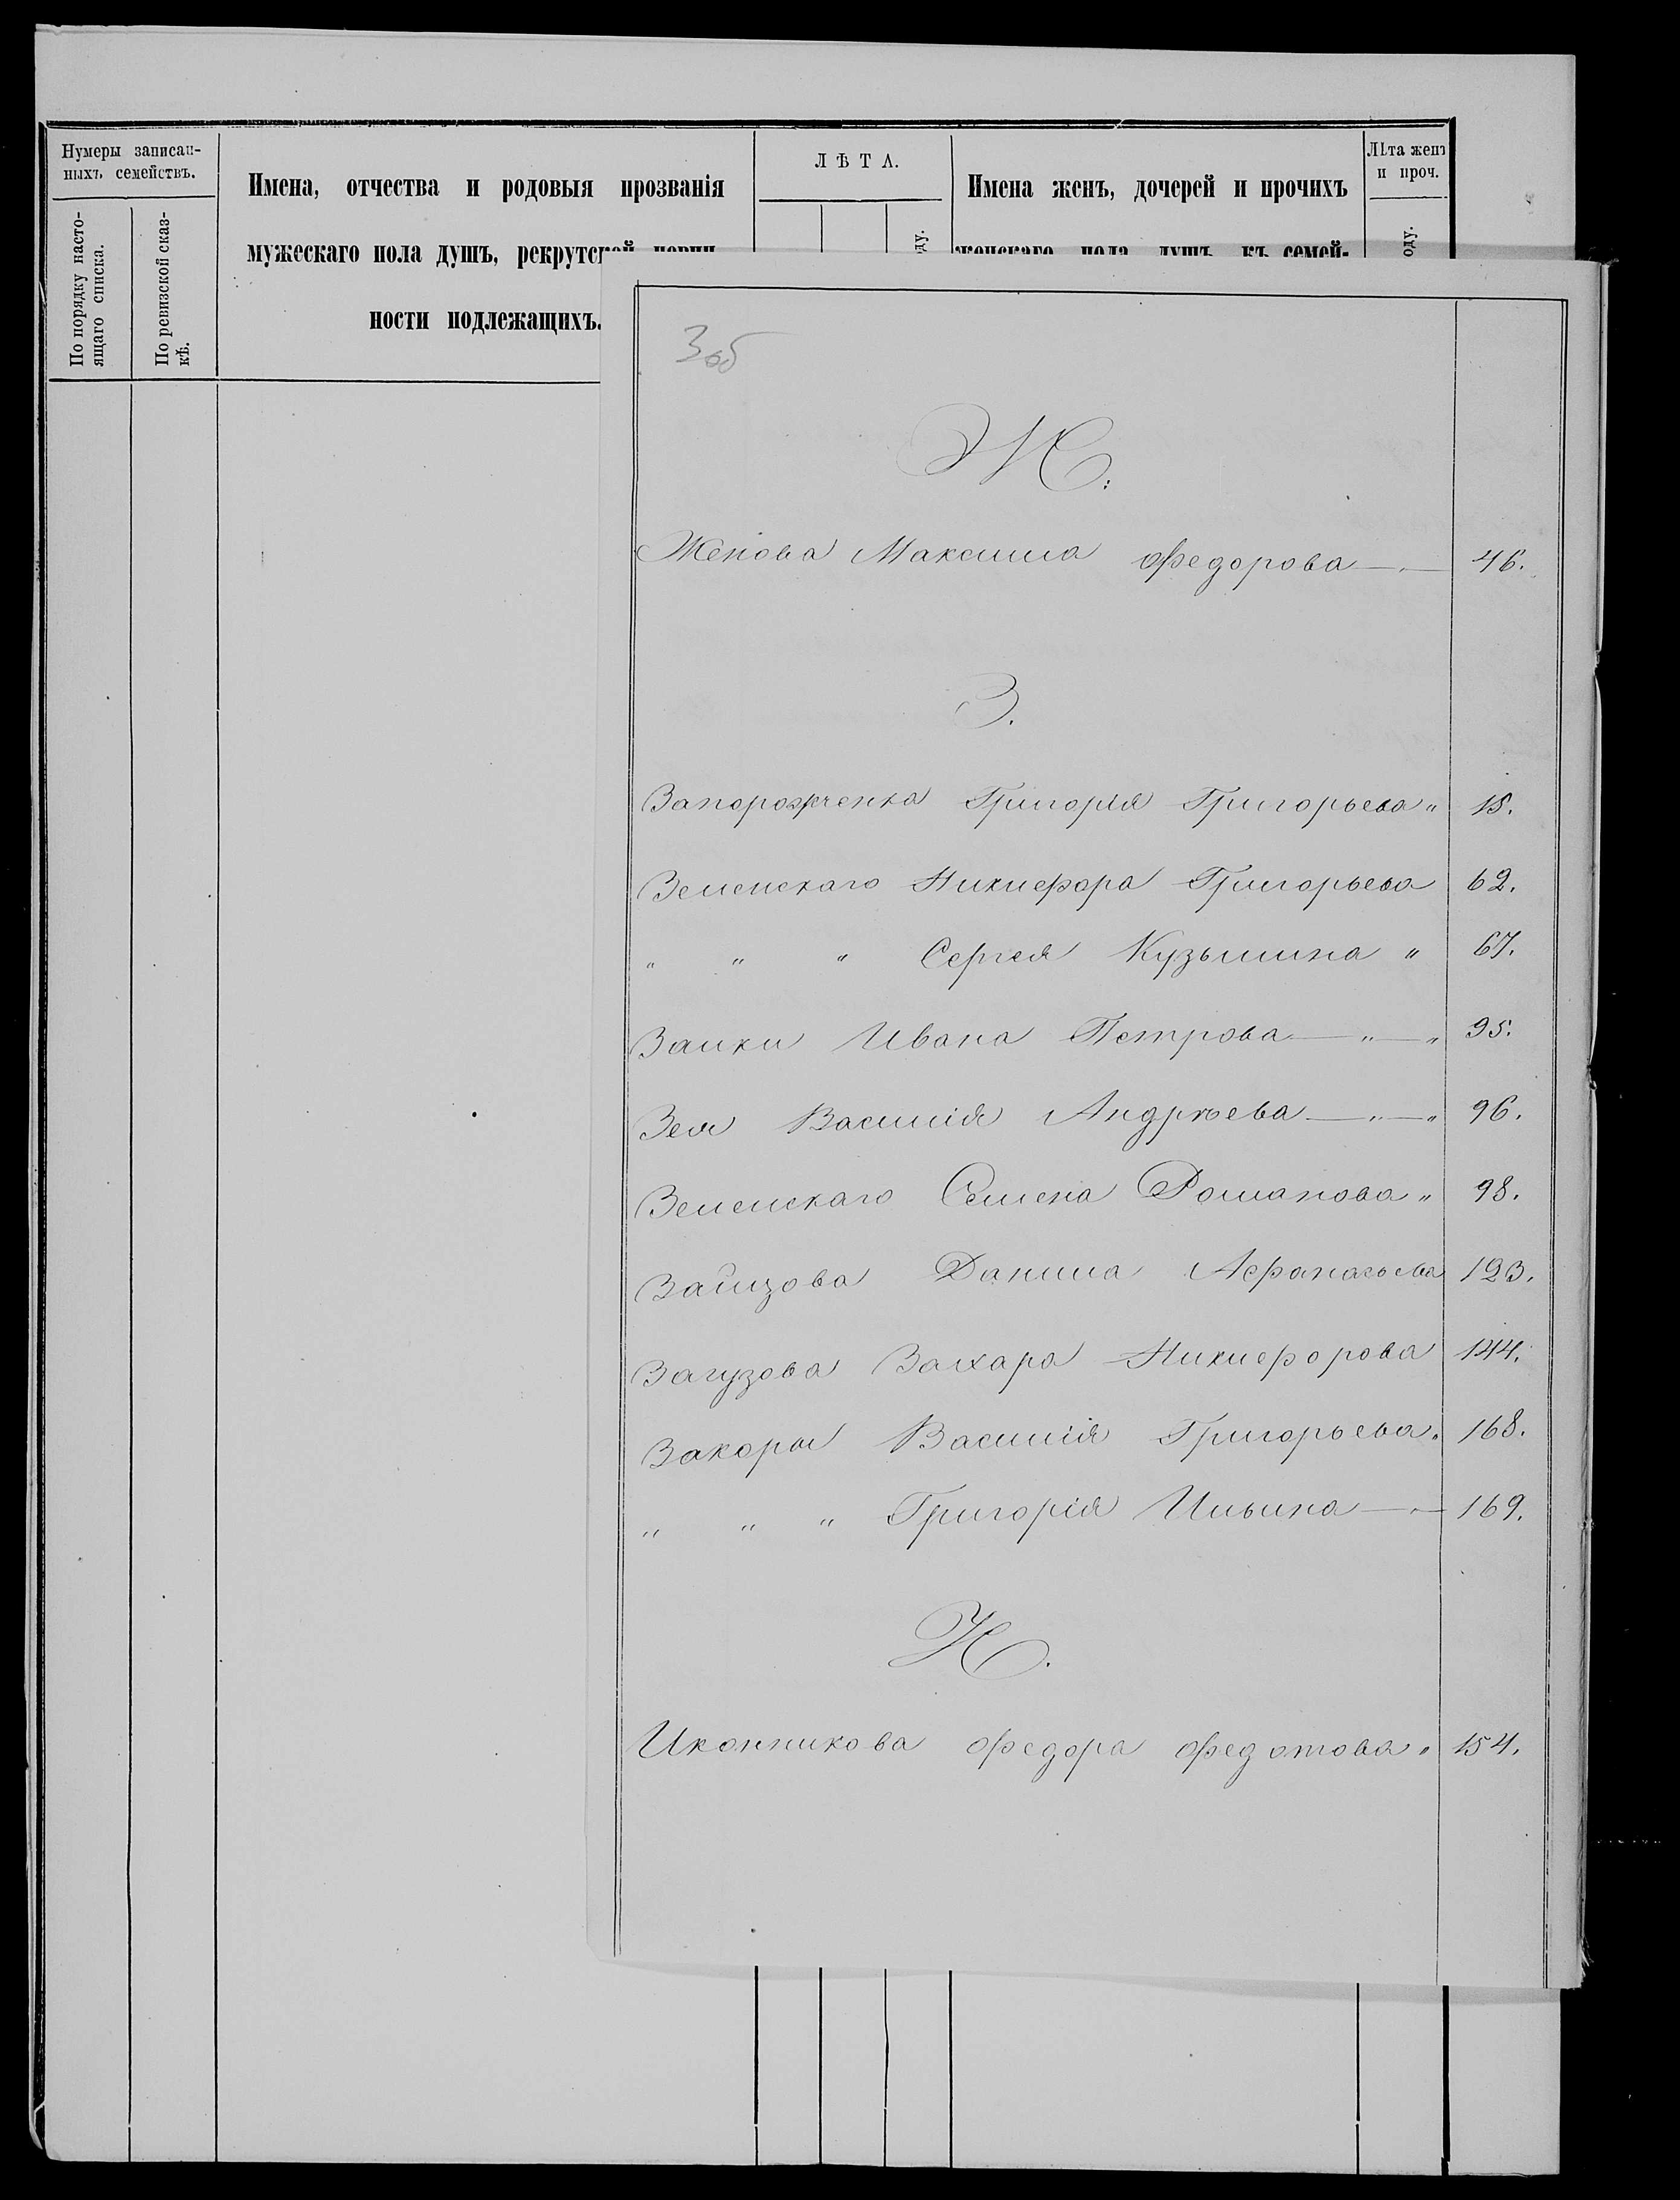 Нумеры записан-
ныхъ семействъ.
По порядку насто-
ящаго списка.
По ревизской сказ-
кѣ.
Имена, отчества и родовыя прозванія
мужескаго пола душъ, рекрутской
ности подлежащихъ.
ЛѢТА.
Имена женъ, дочерей и прочихъ
женскаго пола душъ къ семей-
Лѣта женъ
и проч.
3 об
Ж.
Женова Максима Федорова 46.
З.
Запорожченка Григорія Григорьева " 15.
Земенскаго Никифора Григорьева 62.
" " " Сергея Кузьмина " 67.
Заики Ивана Петрова " " 95.
Зея Василія Андрѣева " " 96.
Земенскаго Семена Романова " 98.
Займзова Данила Афанасьева 123.
Загузова Захара Никифорова 144.
Закоры Василія Григорьева " 168.
" " " Григорія Ильина 169.
И.
Иконникова Федора Федотова " 154.